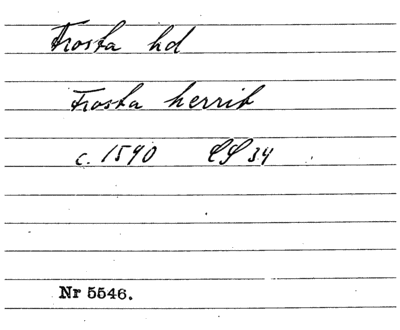 Frosta hd
Frosta herrit
c. 1590 LS 34
Nr 5546.